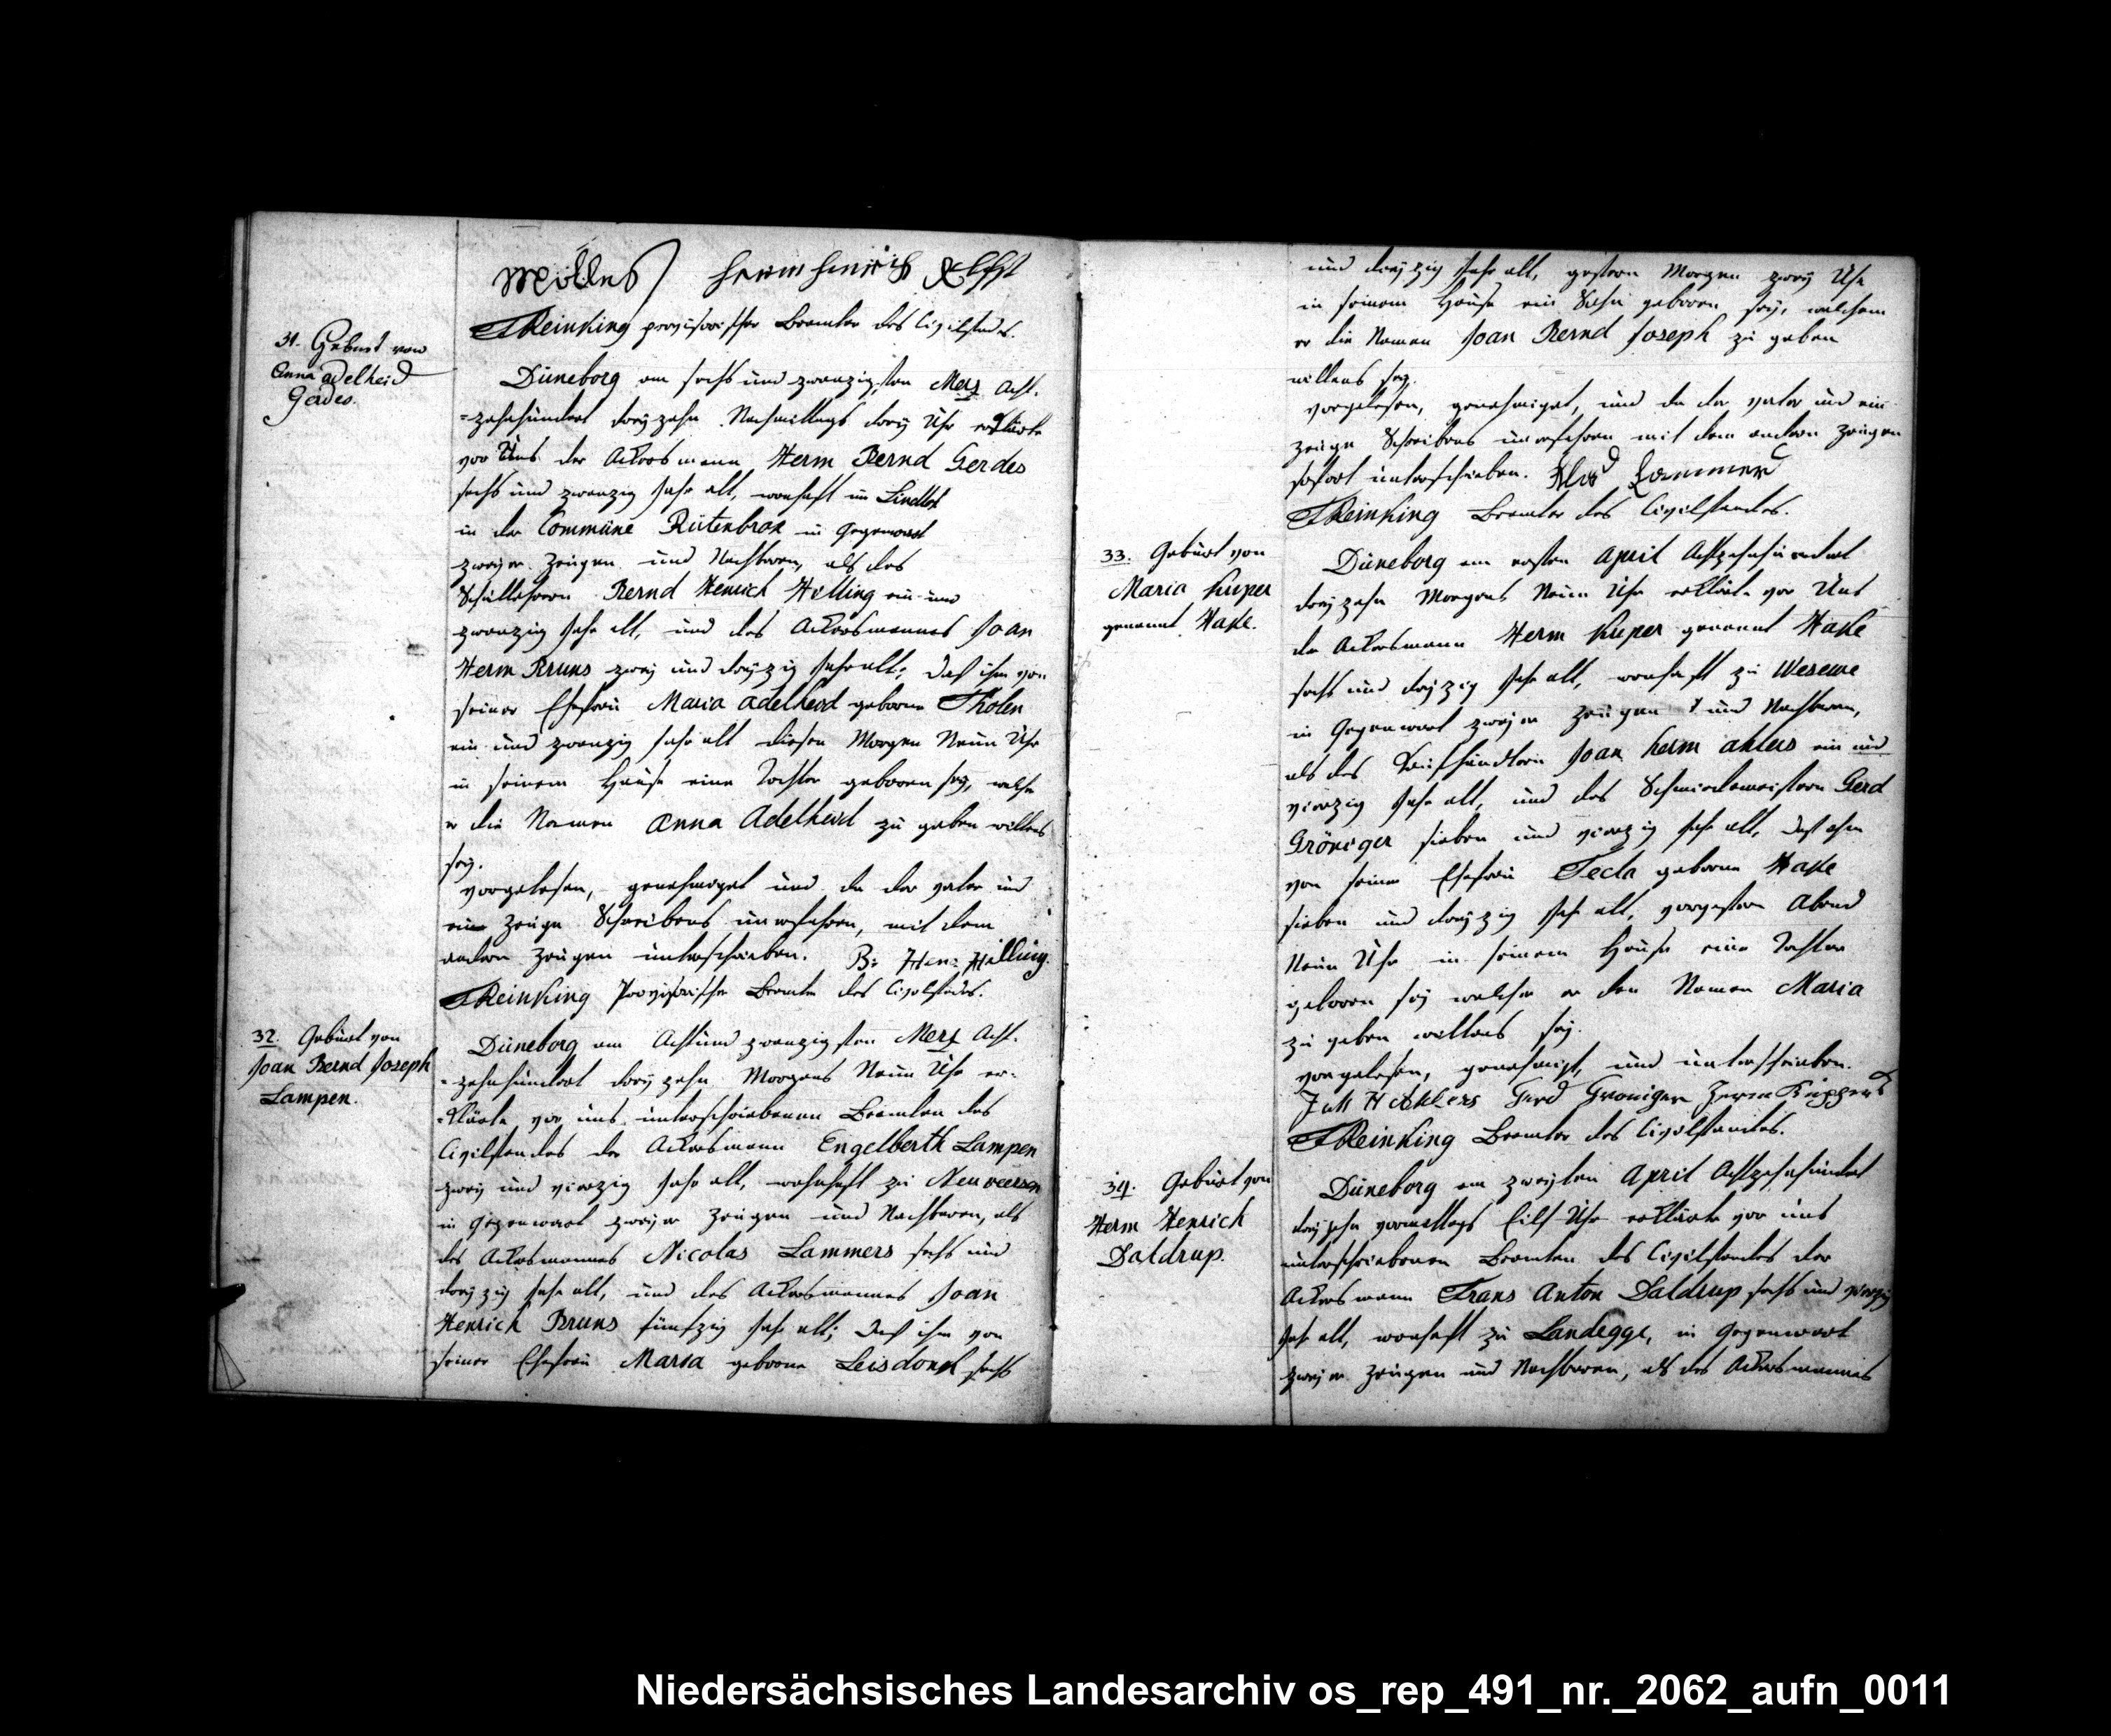 Möller Herm Henrich
TReinking provisorischer Beamter des Civilstandes.
31. Geburt von
Anna Adelheid
Gerdes.
Düneborg am sechs und zwanzigsten Merz Acht-
=zehnhundert dreyzehn Nachmittags drey Uhr erklärte
vor Uns der Ackersmann Herm Bernd Gerdes
sechs und zwanzig Jahr alt, wonhaft im Lindloh
in der Commüne Rütenbrok in Gegenwart
zweyer Zeugen und Nachbaren, als des
Schullehrern Bernd Henrich Hilling ein und
zwanzig Jahr alt, und des Ackersmannes Joan
Herm Bruns zwey und dreyzig Jahr alt; Daß ihm von
seiner Ehefrau Maria Adelheid geborne Tholen
ein und zwanzig Jahr alt diesen Morgen Neun Uhr
in seinem Hause eine Tochter geboren sey, welche
er die Namen Anna Adelheid zu geben willens
sey.
vorgelesen, genehmiget und da der Vater und
ein Zeuge Schreibens unerfahren, mit dem
andern Zeugen unterschrieben. B: Hen: Hilling.
TReinking Provisorischer Beamte des Civilstandes.
32. Geburt von
Joan Bernd Joseph
Lampen.
Düneborg am Achtund zwanzigsten Merz Acht-
=zehnhundert dreyzehn Morgens Neun Uhr er-
=klärte vor uns unterschriebenen Beamten des
Civilstandes der Ackersmann Engelberth Lampen
zwey und vierzig Jahr alt, wohnhaft zu Neuversen
in Gegenwart zweyer Zeugen und Nachbaren, als
des Ackersmannes Nicolas Lammers sechs und
dreyzig Jahr alt, und des Ackersmannes Joan
Henrich Bruns fünfzig Jahr alt; Daß ihm von
seiner Ehefrau Maria geborne Leisdonck sechs
und dreyzig Jahr alt, gestern Morgen zwey Uhr
in seinem Hause ein Sohn geboren sey, welchem
er die Namen Joan Bernd Joseph zu geben
willens sey.
vorgelesen, genehmiget, und da der Vater und ein
Zeuge Schreibens unerfahren mit dem andern Zeugen
sofort unterschrieben. Klas Lammers
TReinking Beamter des Civilstandes.
33. Geburt von
Maria Kuper
genannt Hake.
Düneborg am ersten April Achtzehnhundert
dreyzehn Morgens Neun Uhr erklärte vor Uns
der Ackersmann Herm Kuper genannt Hake
sechs und dreyzig Jahr alt, wonhaft zu Wesewe
in Gegenwart zweyer Zeugen und Nachbaren,
als des Joan Herm Ahlers ein und
vierzig Jahr alt, und des Schmiedemeistern Gerd
Gröniger sieben und vierzig Jahr alt, Daß ihm
von seiner Ehefrau Tecla geborne Hake
sieben und dreyzig Jahr alt, vorgestern Abend
Neun Uhr in seinem Hause eine Tochter
geboren sey welcher er den Namen Maria
zu geben willens sey.
vorgelesen, genehmigt, und unterschrieben.
H Ahlers Gerd Groniger Herm Küppers
TReinking Beamter des Civilstandes.
34. Geburt von
Herm Henrich
Daldrup.
Düneborg am zweyten April Achtzehnhundert
dreyzehn vormittags Eilf Uhr erklärte vor uns
unterschriebenen Beamten des Civilstandes der
Ackersmann Frans Anton Daldrup sechs und vierzig
Jahr alt, wonhaft zu Landegge, in Gegenwart
zweyer Zeugen und Nachbaren, als des Ackersmannes
Niedersächsisches Landesarchiv os_rep_491_nr._2062_aufn_0011